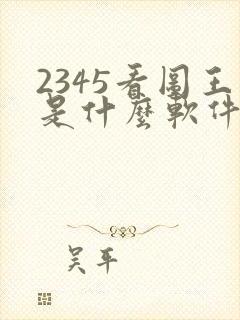 2345看图王
是什麼軟件
吴平